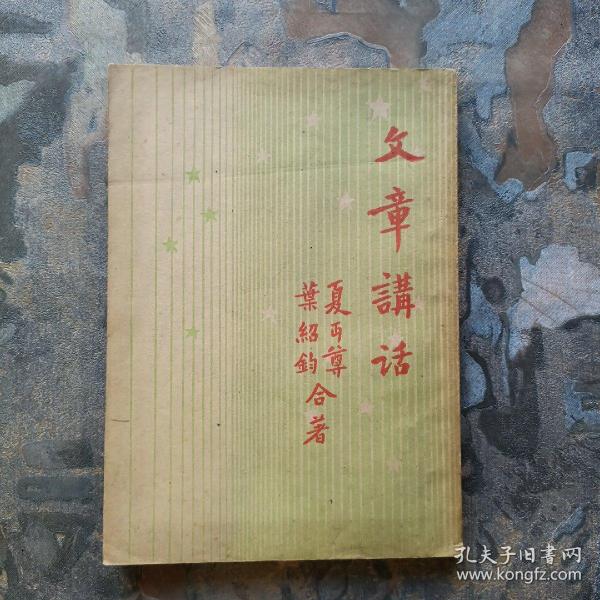 文章講话
夏丏尊
葉紹鈞
合著
孔夫子旧書网
www.kongfz.com